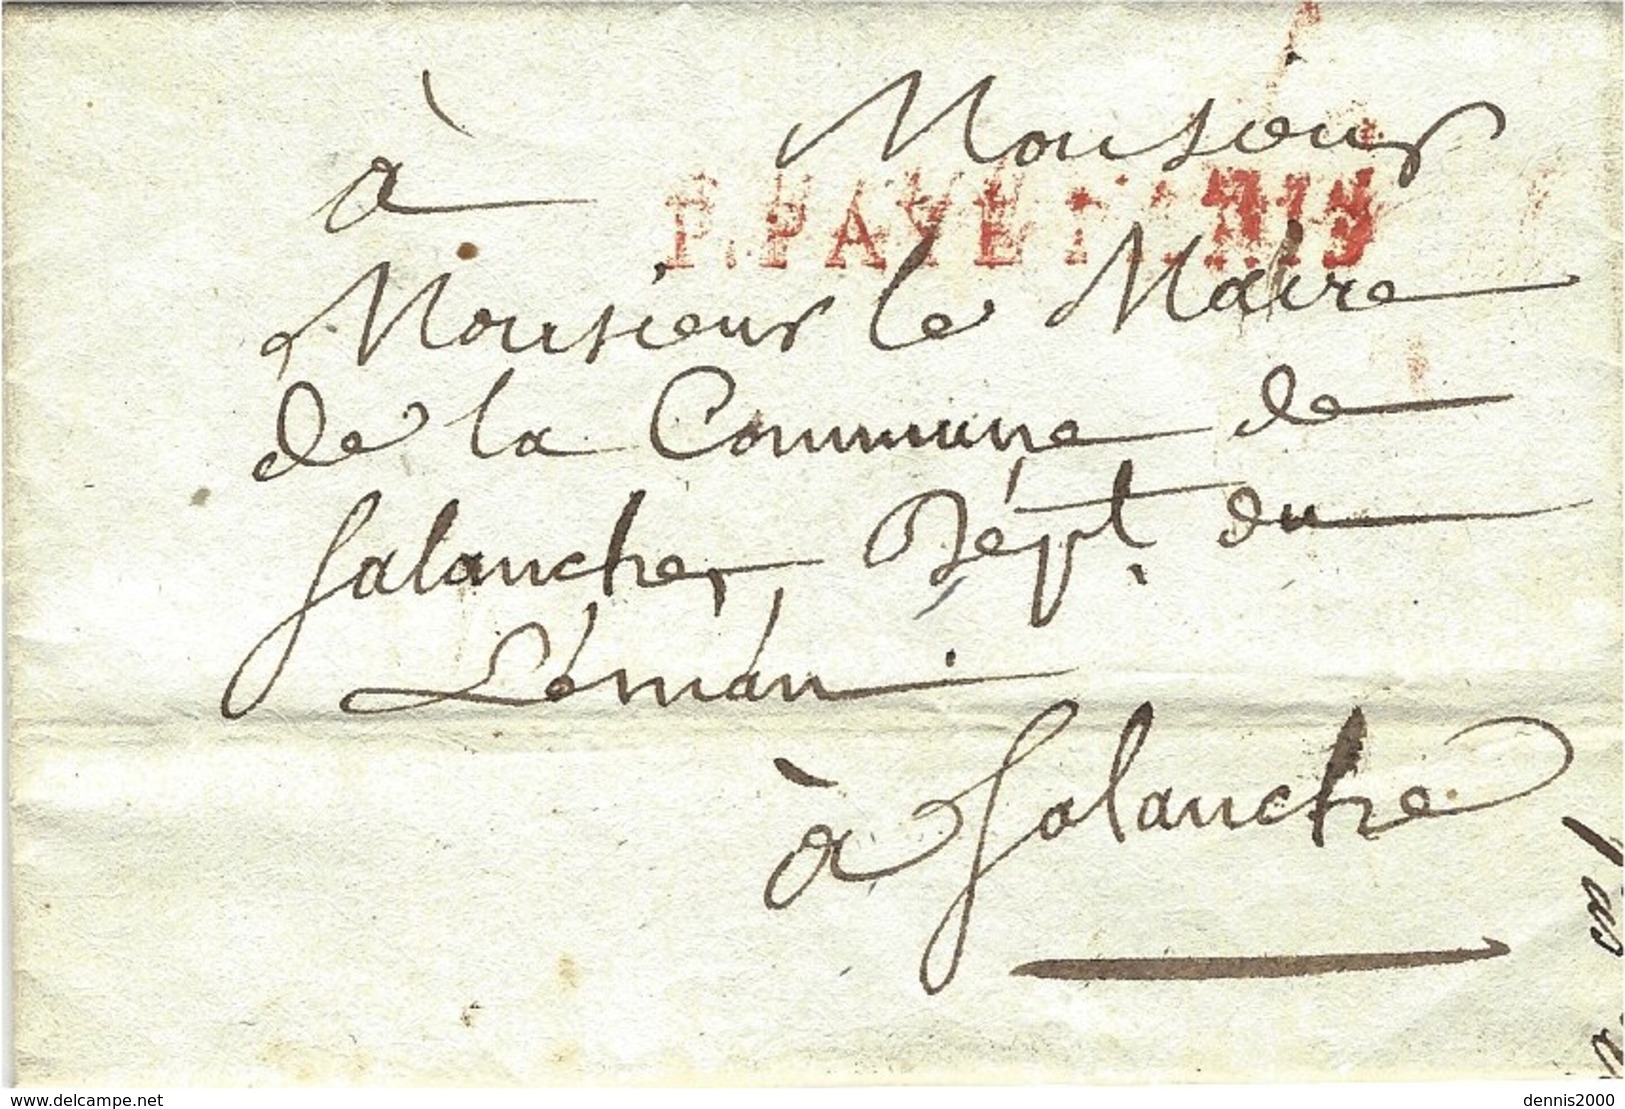 à Monsieur
P.PAYÉ PARIS
Monsieur le Maire
de la Commune de
Salanche, Dépt. du
Léman.
à Salanche
delcampe.net
dennis2000